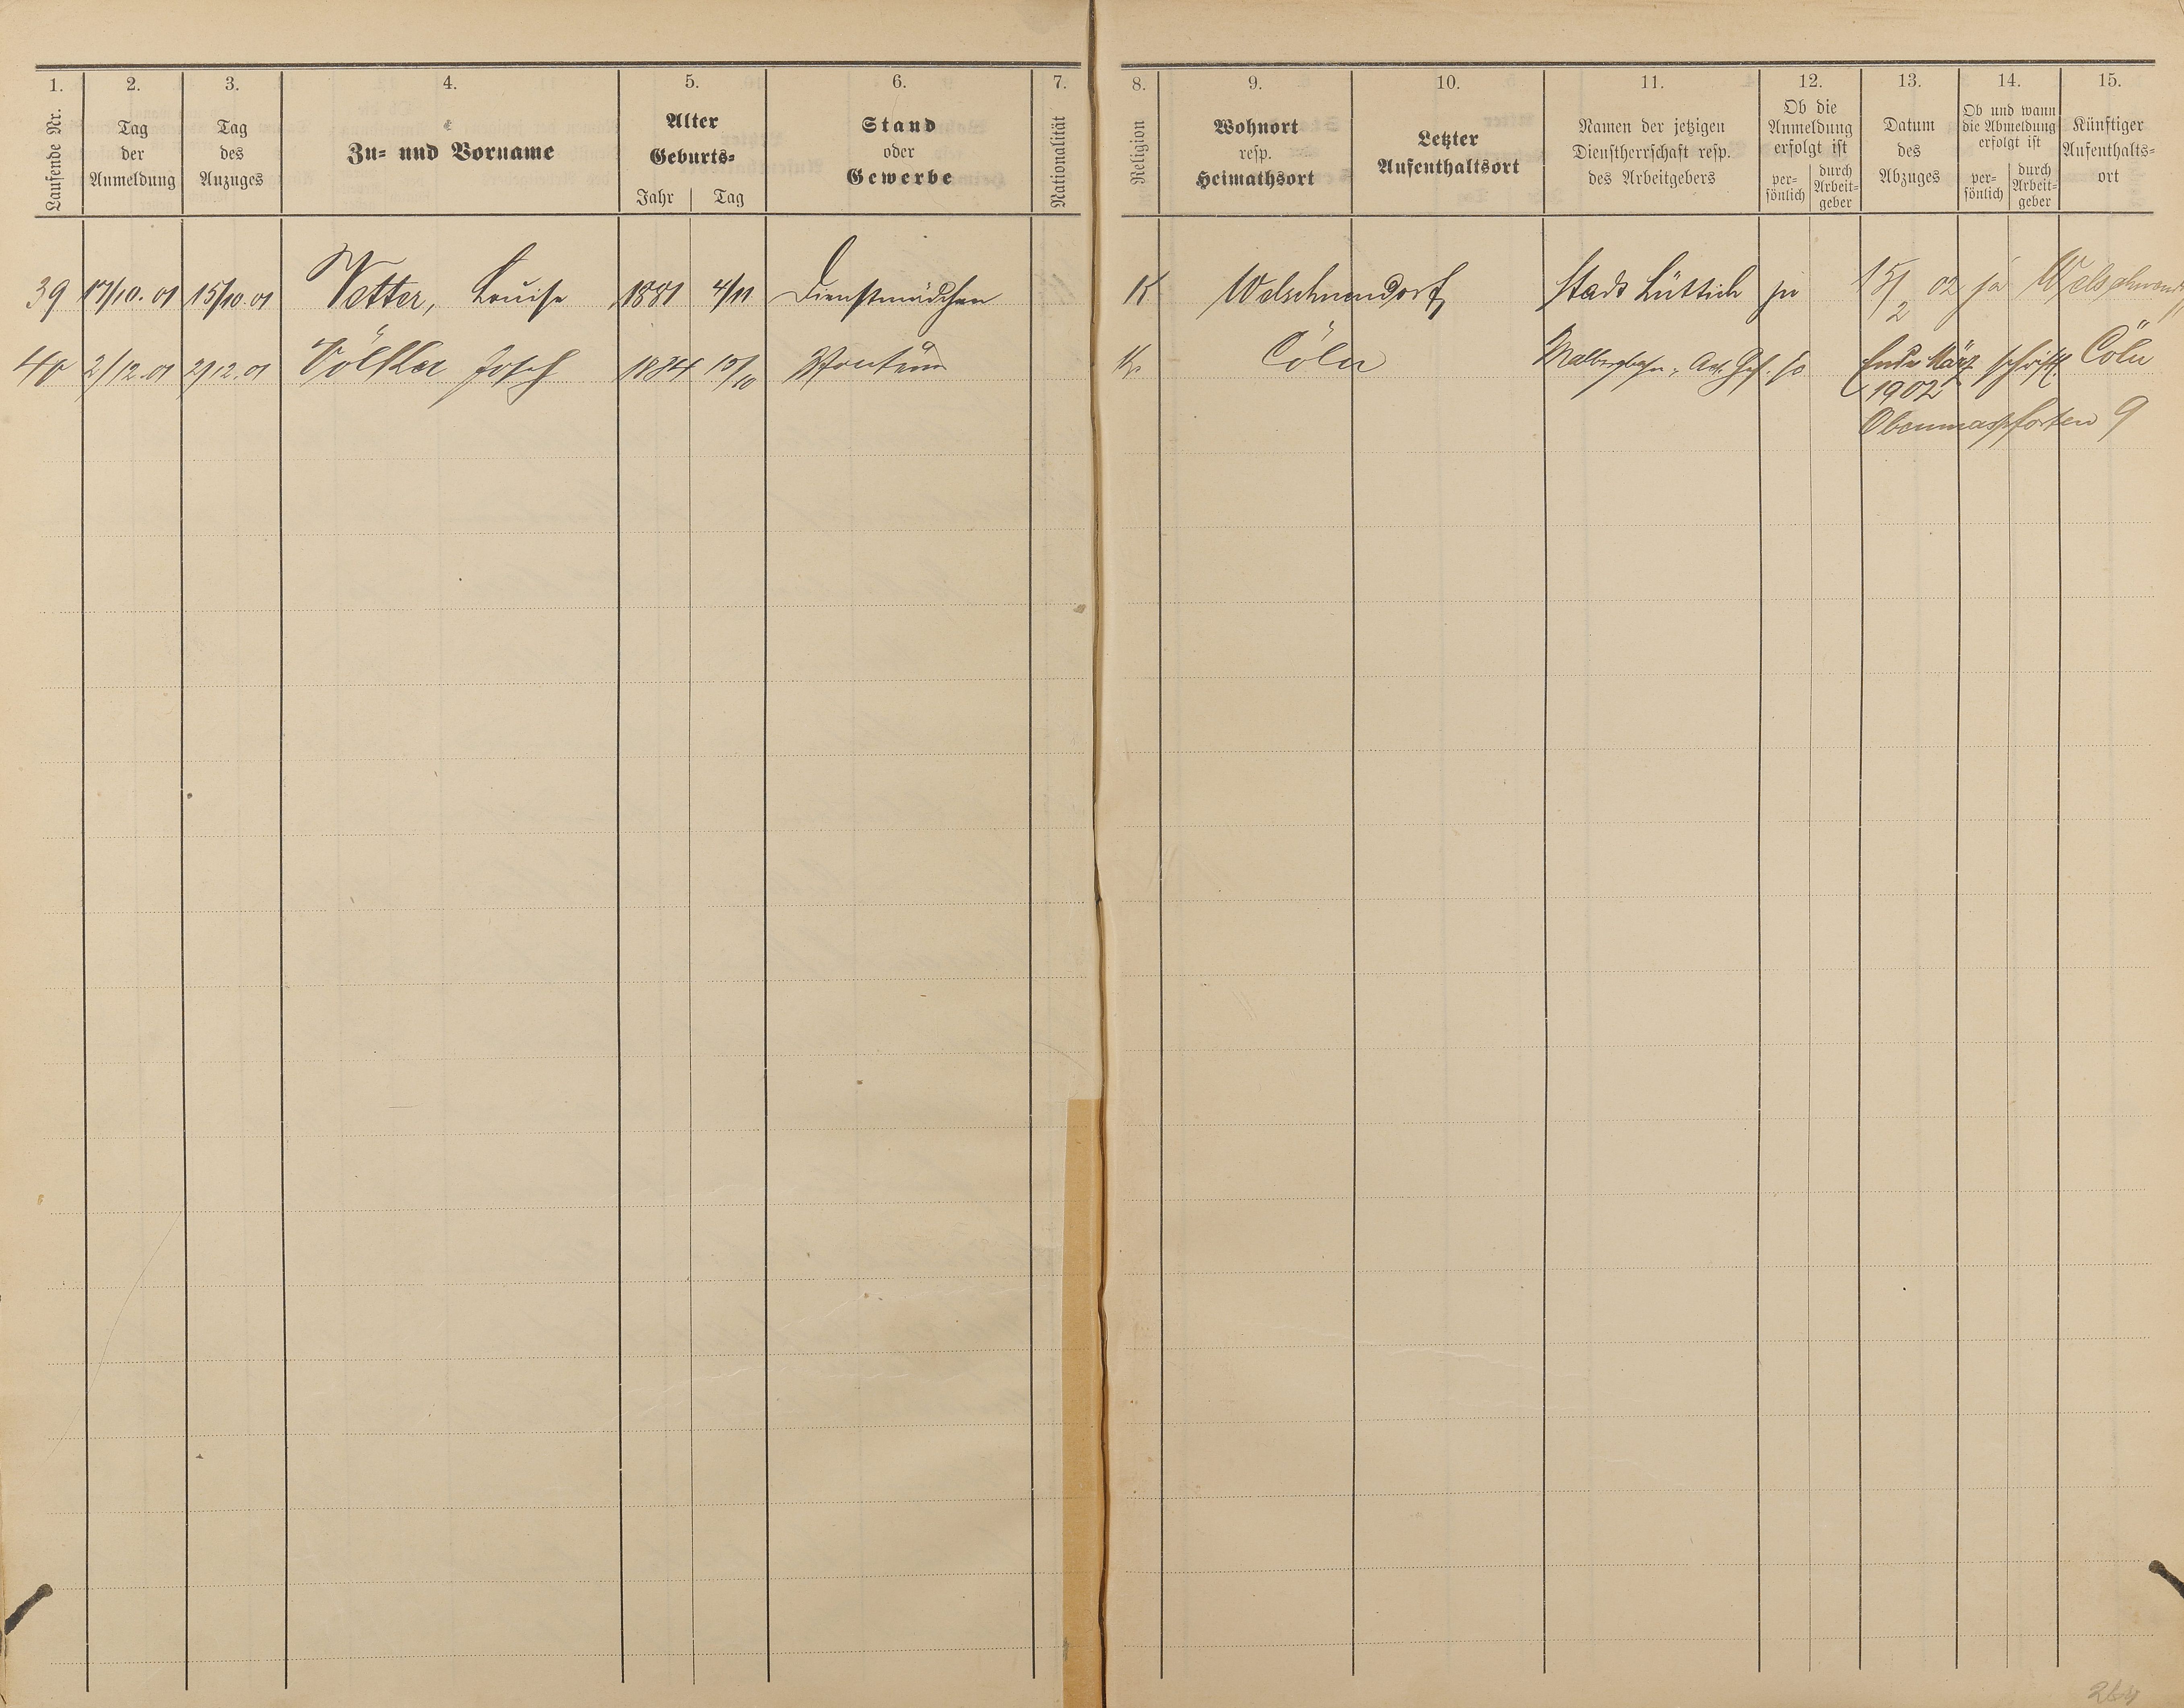 1. 2. 3. 4. 5. 6. 7. 8. 9. 10. 11. 12. 13. 14. 15.
Laufende Nr.
Tag der Anmeldung
Tag des Anzuges
Zu= und Vorname
Alter Geburts=
Jahr Tag
Stand oder Gewerbe
Nationalität
Religion
Wohnort resp. Heimathsort
Letzter Aufenthaltsort
Namen der jetzigen Dienstherrschaft resp. des Arbeitgebers
Ob die Anmeldung erfolgt ist
per=sönlich durch Arbeit=geber
Datum des Abzuges
Ob und wann die Abmeldung erfolgt ist
per=sönlich durch Arbeit=geber
Künftiger Aufenthalts=ort
39 17/10. 01 15/10. 01 Vetter, Louise 1881 4/11 Dienstmädchen K Welschneudorf Stadt Lüttich ja 15/2 02 ja
40 2/12. 01 2/12. 01 Völlker Josef 1884 10/10 K. Cöln Malbergbahn, Act. Ges. Ende März schriftl. Cöln
1902
Obenmarspforten 9